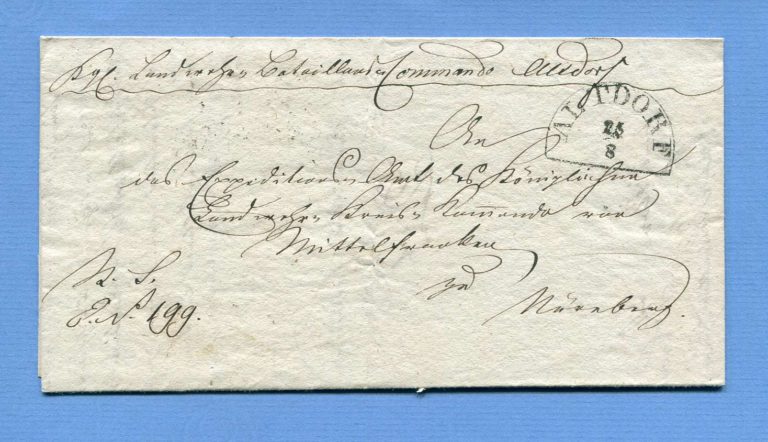 Kgl. Landwehr Bataillons Commando Altdorf
ALTDORF
25
8
An
das Expeditions-Amt des Königlichen
Landwehr-Kreis-Kommando von
Mittelfranken
zu
Nürnberg.
R. S.
E. N. 199.